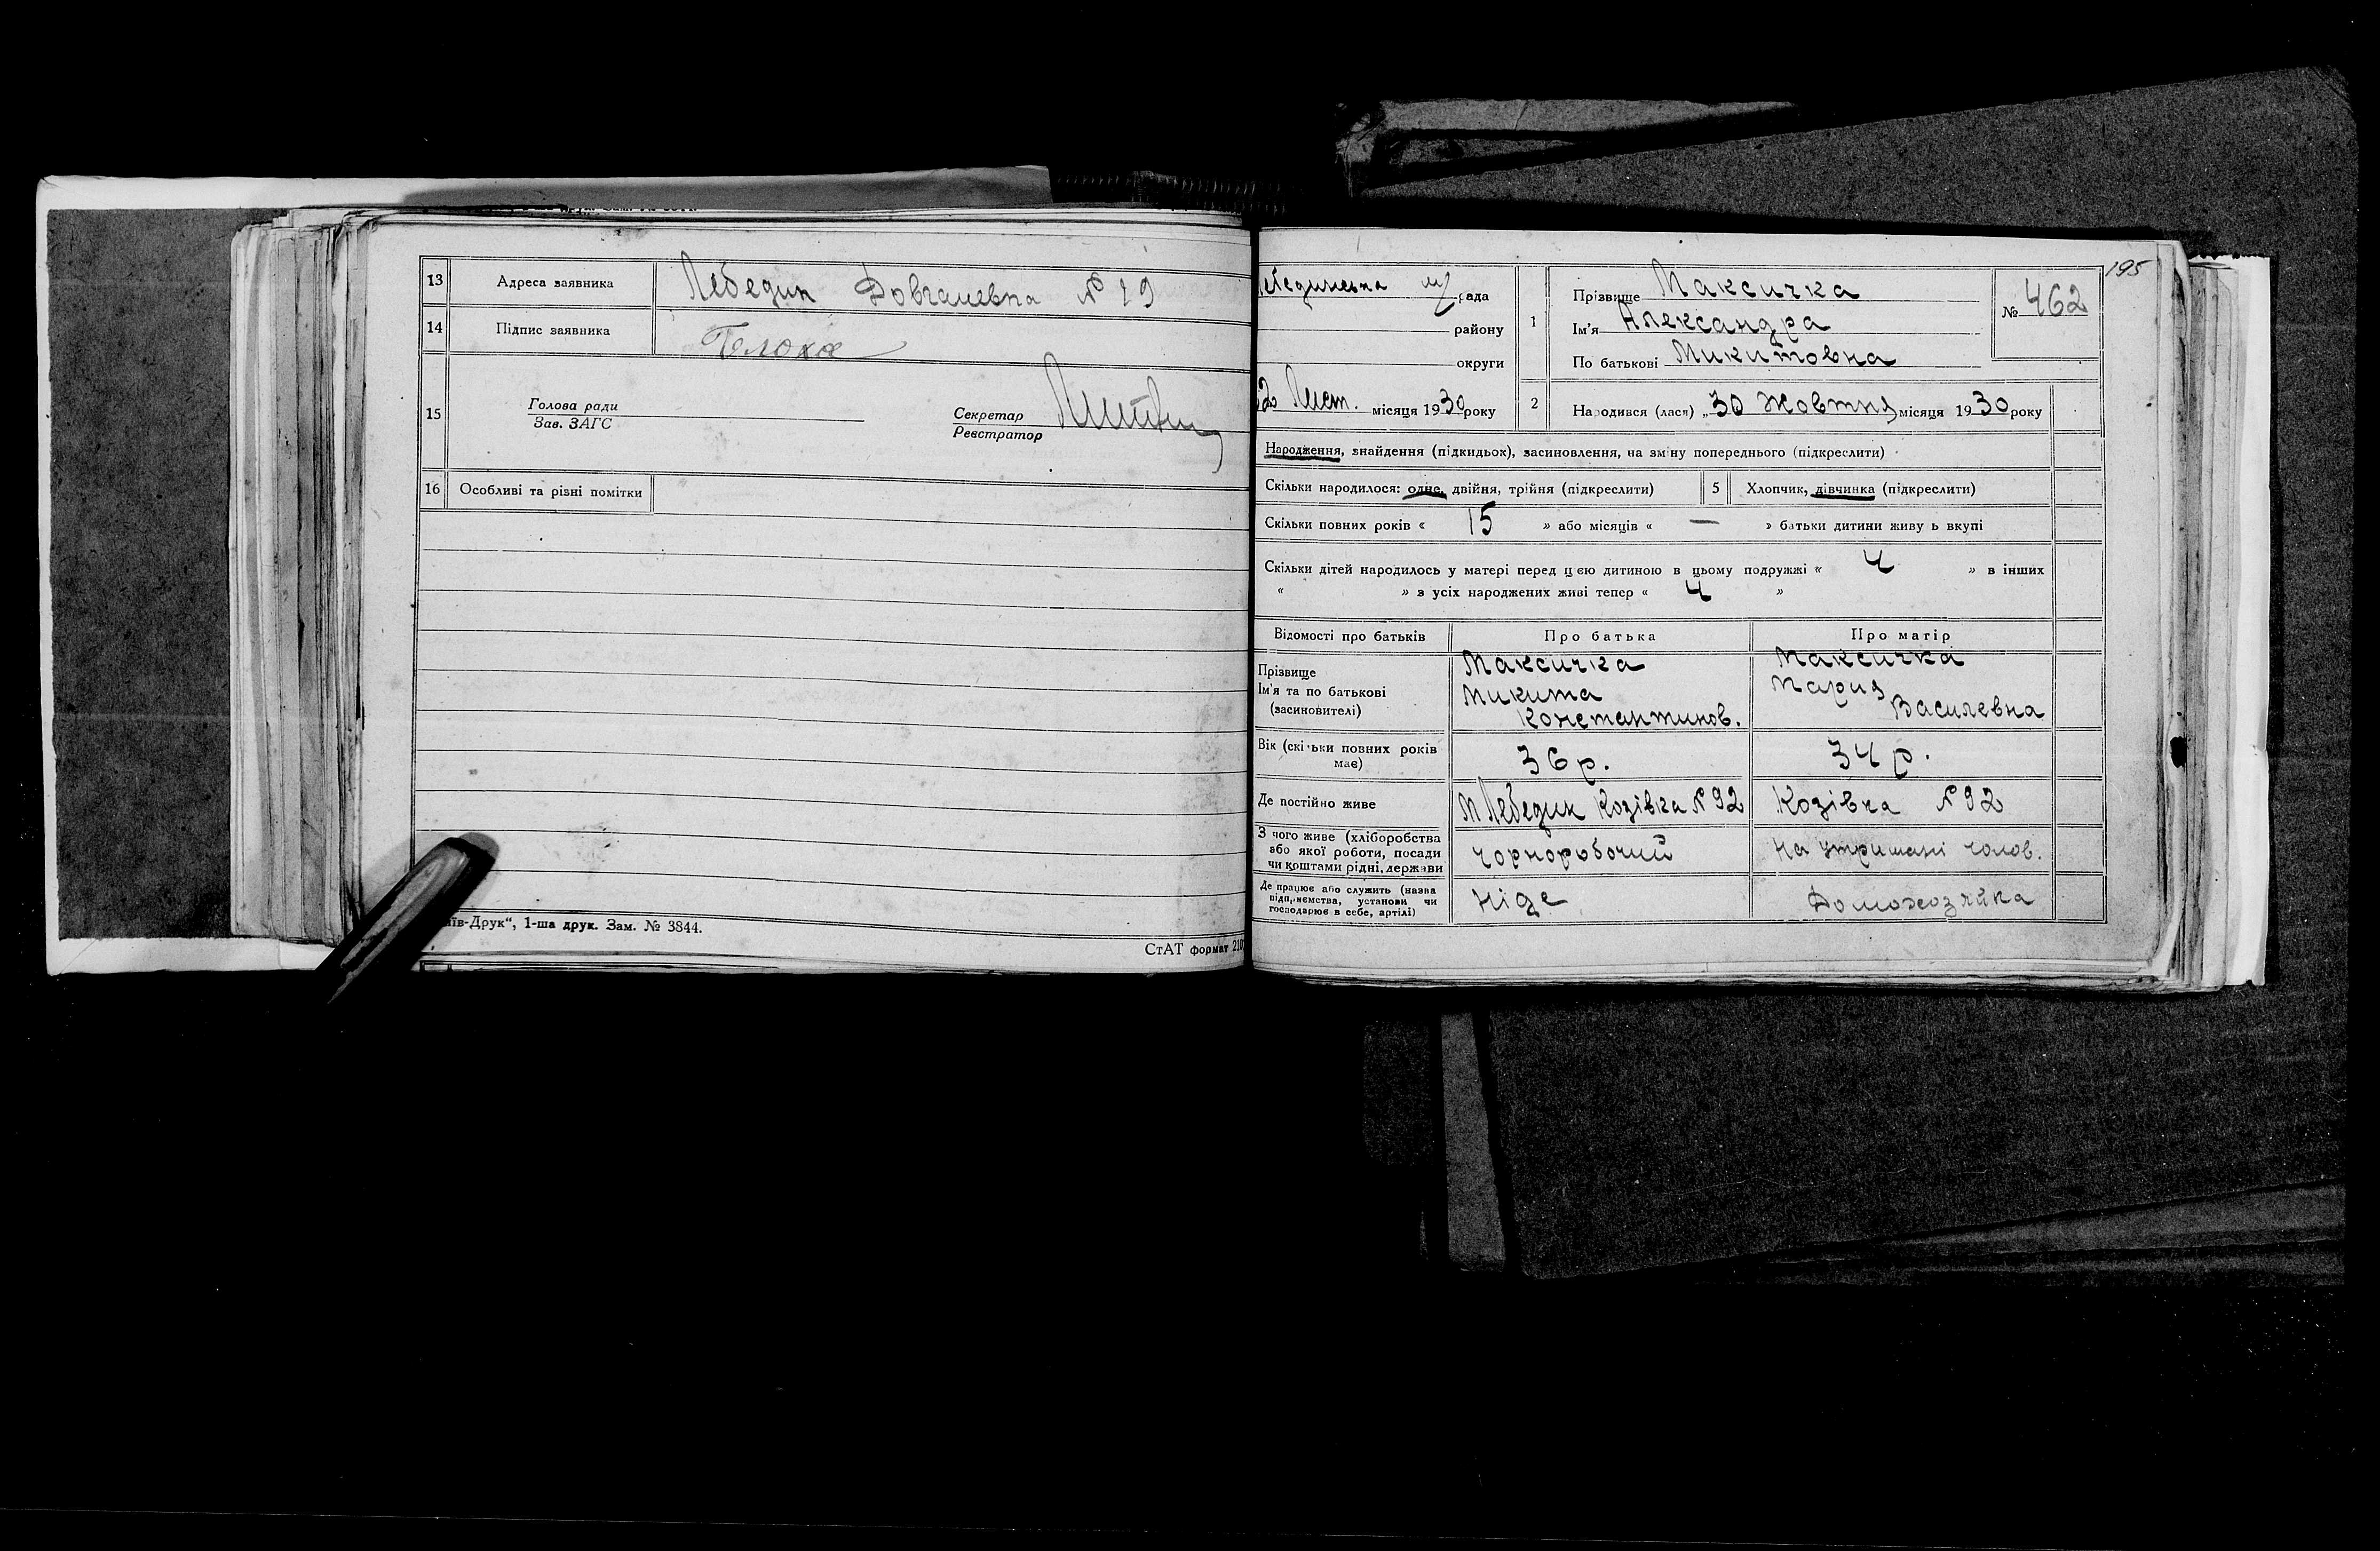 13 Адреса заявника Лебедин Довгалевка № 19
14 Підпис заявника Блоха
15 Голова ради
Зав. ЗАГС
Секретар
Реєстратор
16 Особливі та різні помітки
їв-Друк“, 1-ша друк. Зам. № 3844.
СтАТ формат 210
195
ебединська м/рада
району
округи
2 Лист. місяця 1930 року
1 Прізвище Максичка
Ім'я Александра
По батькові Микитовна
№ 462
2 Народився (лася) „30 Жовтня місяця 1930 року
Народження, знайдення (підкидьок), засиновлення, на зміну попереднього (підкреслити)
Скільки народилося: одне, двійня, трійня (підкреслити) 5 Хлопчик, дівчинка (підкреслити)
Скільки повних років « 15 » або місяців « — » батьки дитини живу ь вкупі
Скільки дітей народилось у матері перед цією дитиною в цьому подружжі « 4 » в інших
« » з усіх народжених живі тепер « 4 »
Відомості про батьків Про батька Про матір
Прізвище Максичка Максичка
Ім'я та по батькові Микита Мария
(засиновителі) Константинов. Василевна
Вік (скільки повних років має) 36 р. 34 р.
Де постійно живе М Лебедин Козівка № 92 Козівка № 92
З чого живе (хліборобства
або якої роботи, посади чорноробочий На утримані чолов.
чи коштами рідні, держави
Де працює або служить (назва
підприємства, установи чи Ніде Домохозяйка
господарює в себе, артілі)